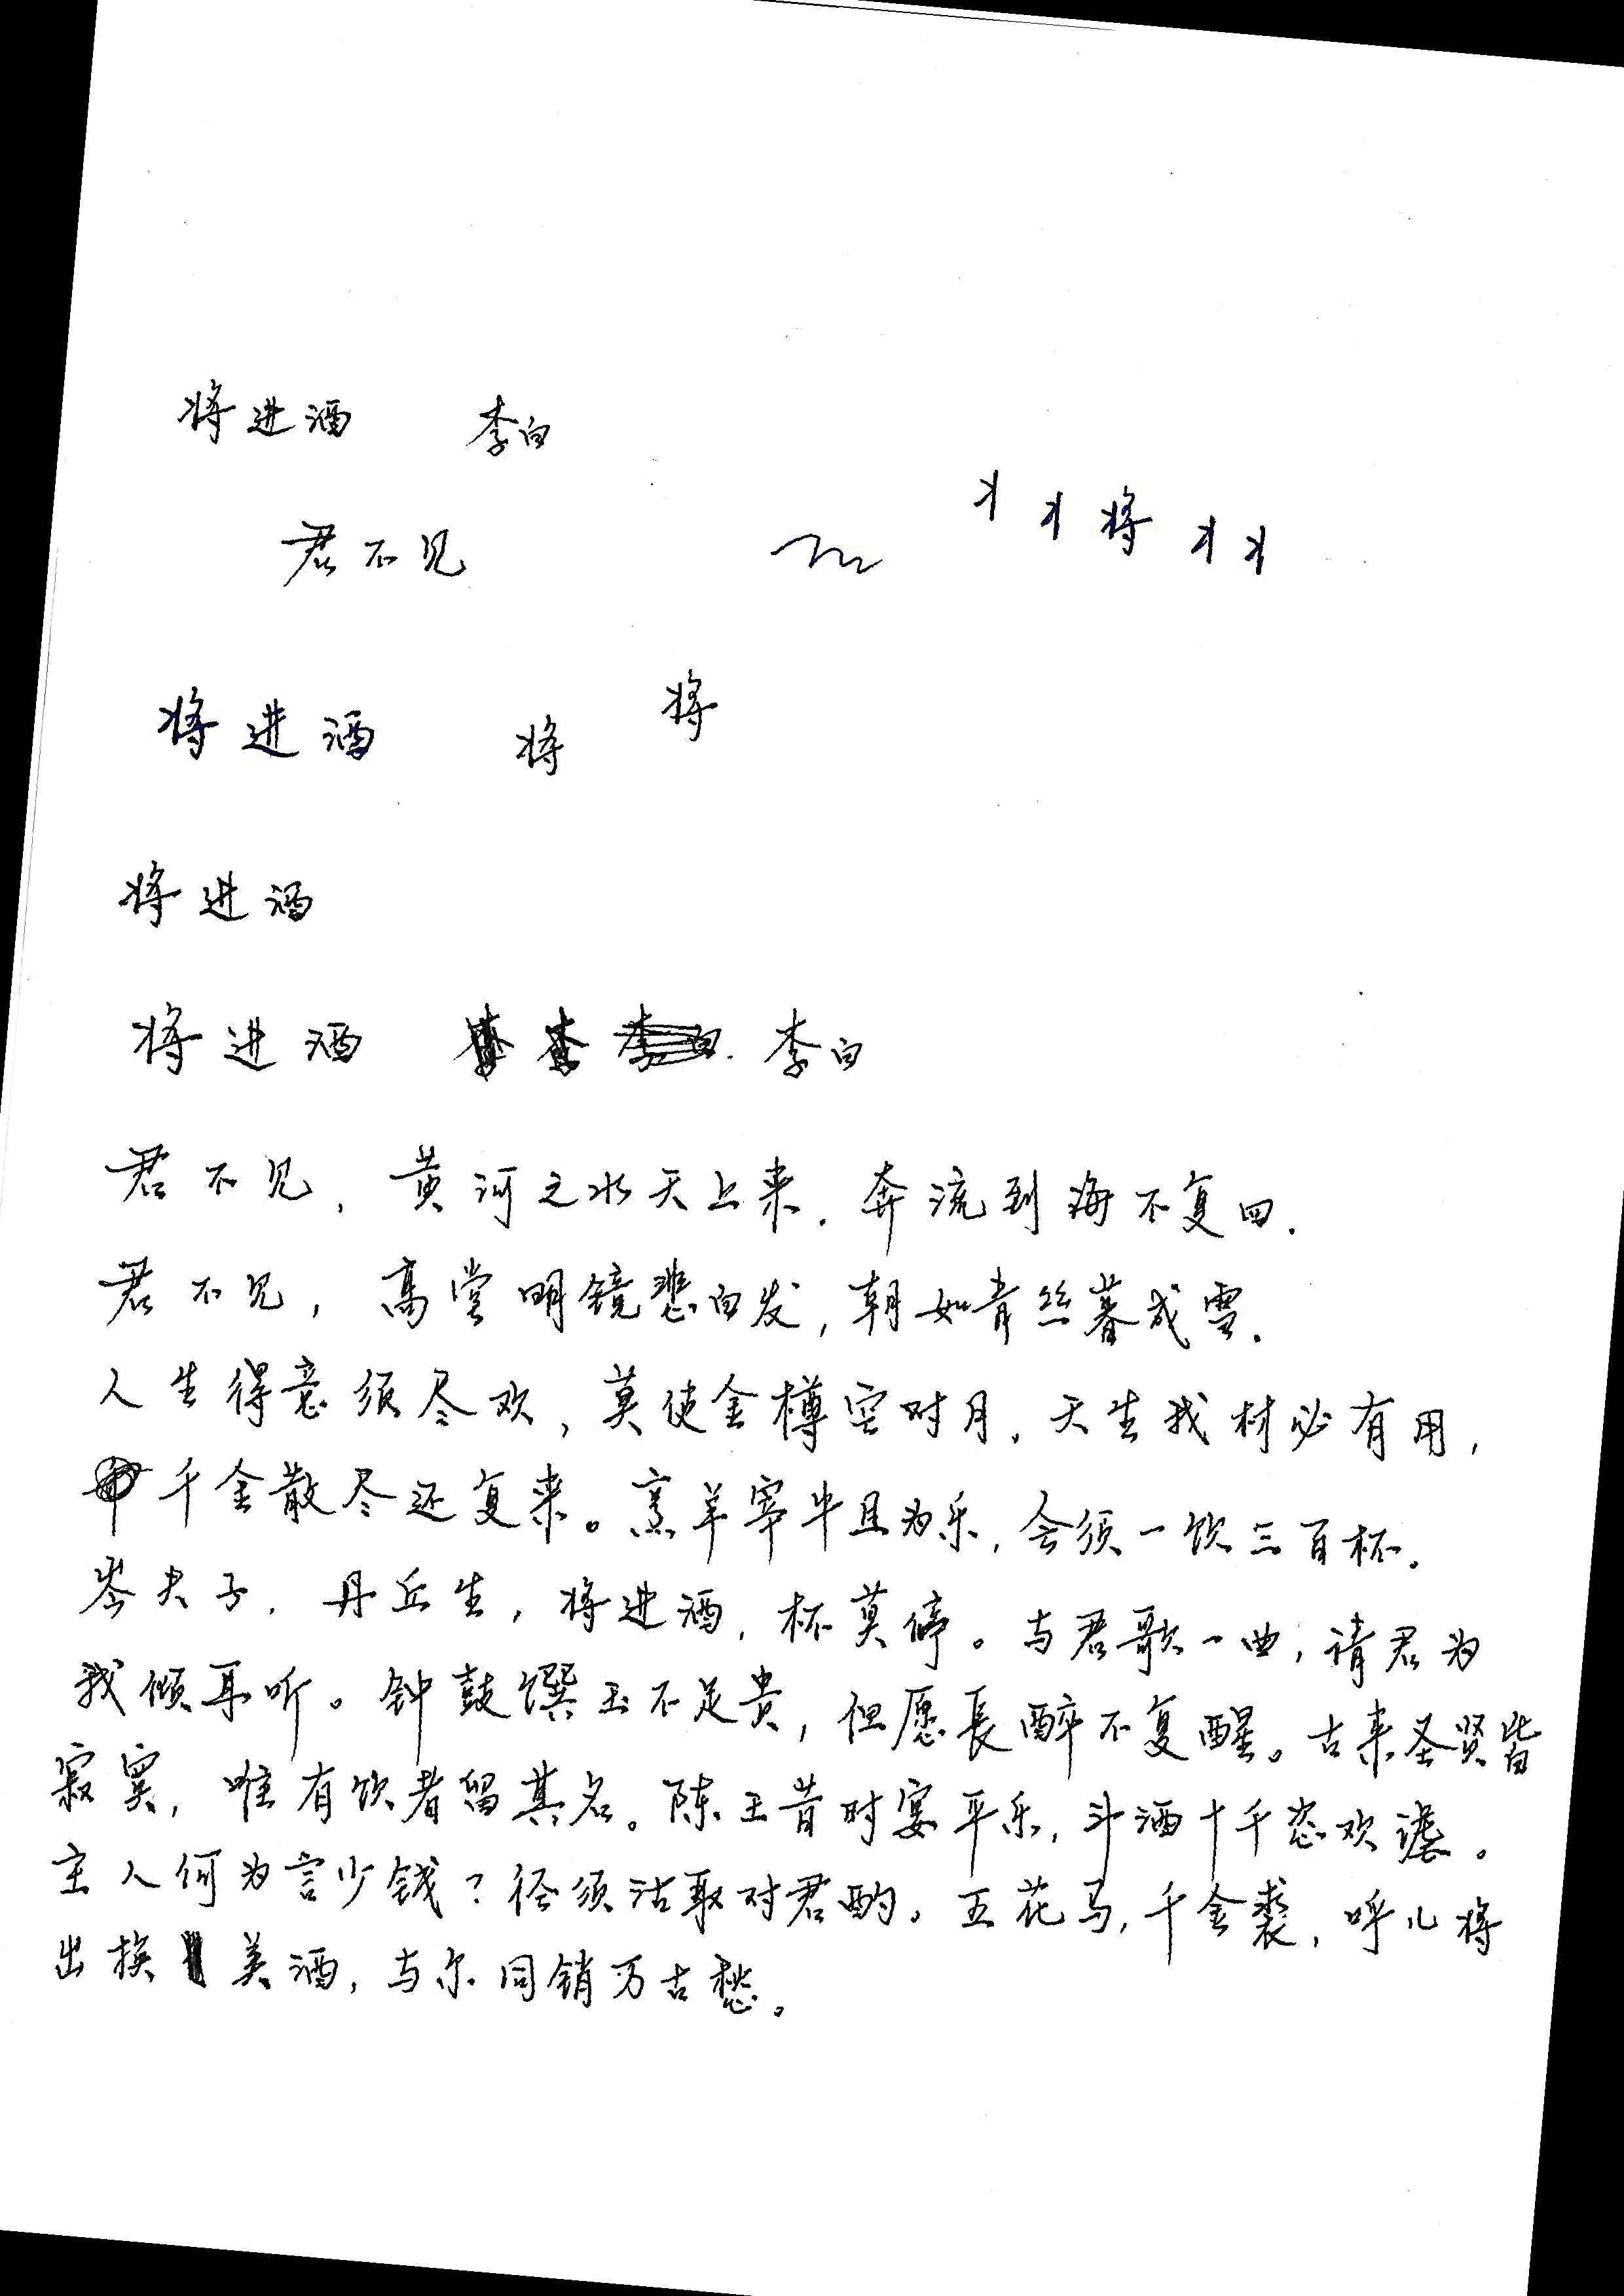 将进酒 李白
丬丬将丬丬
君不见
将
将进酒 将
将进酒
将进酒 李白
君不见，黄河之水天上来，奔流到海不复回.
君不见，高堂明镜悲白发，朝如青丝暮成雪.
人生得意须尽欢，莫使金樽空对月，天生我材必有用，
千金散尽还复来。烹羊宰牛且为乐，会须一饮三百杯.
岑夫子，丹丘生，将进酒，杯莫停。与君歌一曲，请君为
我倾耳听。钟鼓馔玉不足贵，但愿長醉不复醒。古来圣贤皆
寂寞，唯有饮者留其名。陈王昔时宴平乐，斗酒十千恣欢谑。
主人何为言少钱？径须沽取对君酌。五花马，千金裘，呼儿将
出换美酒，与尔同销万古愁。